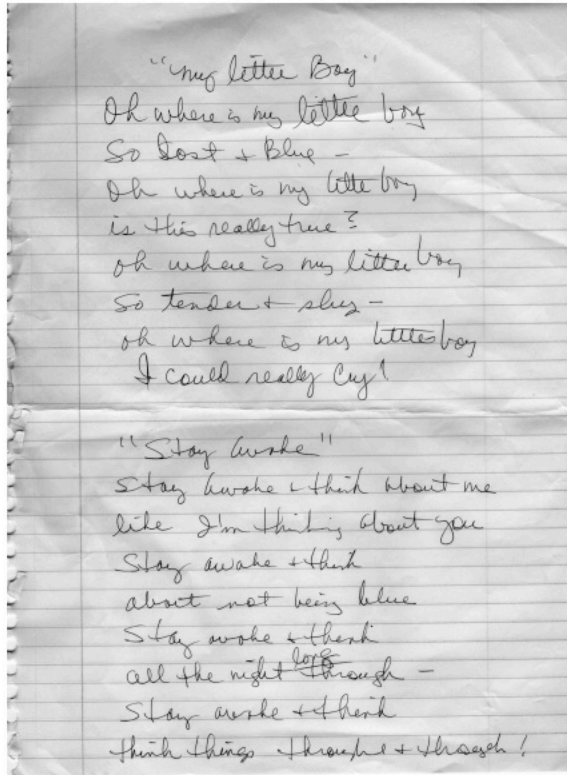 "My little Boy"
Oh where is my little boy
So Lost + Blue -
Oh where is my little boy
is this really true?
oh where is my little boy
So tender + shy -
oh where is my little boy
I could really Cry!
"Stay Awake"
Stay Awake + think about me
like I'm thinking about you
Stay awake + think
about not being blue
Stay awake + think
all the night long through -
Stay awake + think
think things through + through!